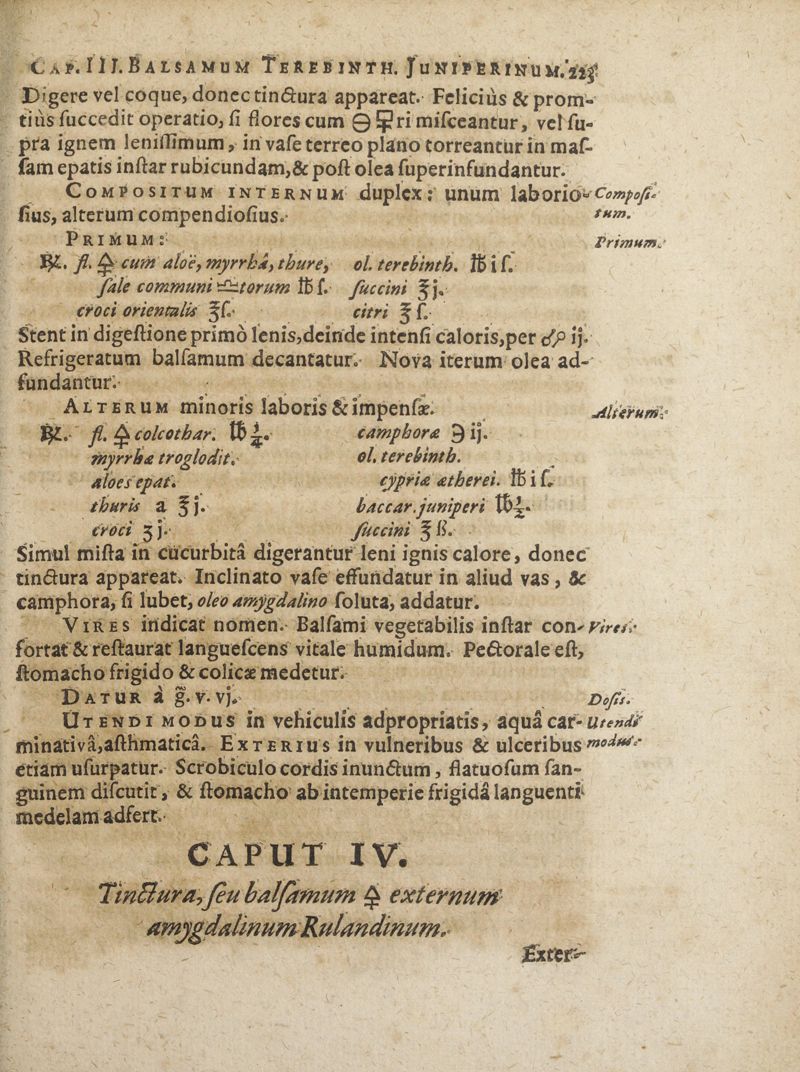 CAP. III. BALSAMUM TEREBINTH. JUNIPERINUM.
Digere vel coque, donec tinctura appareat. Feliciùs & prom-
tiùs succedit operatio, si flores cum 🜔 🜿ri misceantur, vel su-
pra ignem lenissimum, in vase terreo plano torreantur in mas-
sam epatis instar rubicundam, & post olea superinfundantur.
COMPOSITUM INTERNUM duplex: unum laborio- Composi-
sius, alterum compendiosius. tum.
PRIMUM: Primum.
℞. fl. 🜍 cum aloë, myrrhâ, thure, ol. terebinth. ℔ i ſ.
sale communi ♎torum ℔ ſ. succini ℥ j.
croci orientalis ℥ſ. citri ℥ ſ.
Stent in digestione primò lenis, deinde intensi caloris, per ij.
Refrigeratum balsamum decantatur. Nova iterum olea ad-
fundantur.
ALTERUM minoris laboris & impensæ. Alterum.
℞. fl. 🜍 colcothar. ℔ ½. camphoræ ℈ ij.
myrrhæ troglodit. ol. terebinth.
aloes epat. cypriæ ætherei. ℔ i ſ.
thuris a ℥ j. baccar. juniperi ℔ ½.
croci ʒ j. succini ℥ ß.
Simul mista in cucurbitâ digerantur leni ignis calore, donec
tinctura appareat. Inclinato vase effundatur in aliud vas, &
camphora, si lubet, oleo amygdalino soluta, addatur.
VIRES indicat nomen. Balsami vegetabilis instar con- Vires.
fortat & restaurat languescens vitale humidum. Pectorale est,
stomacho frigido & colicæ medetur.
DATUR à g. v. vj. Dosis.
UTENDI MODUS in vehiculis adpropriatis, aquâ car- Utendi
minativâ, asthmaticâ. EXTERIUS in vulneribus & ulceribus modus.
etiam usurpatur. Scrobiculo cordis inunctum, flatuosum san-
guinem discutit, & stomacho ab intemperie frigidâ languenti
medelam adfert.
CAPUT IV.
Tinctura, seu balsamum 🜍 externum
amygdalinum Rulandinum.
Exter-